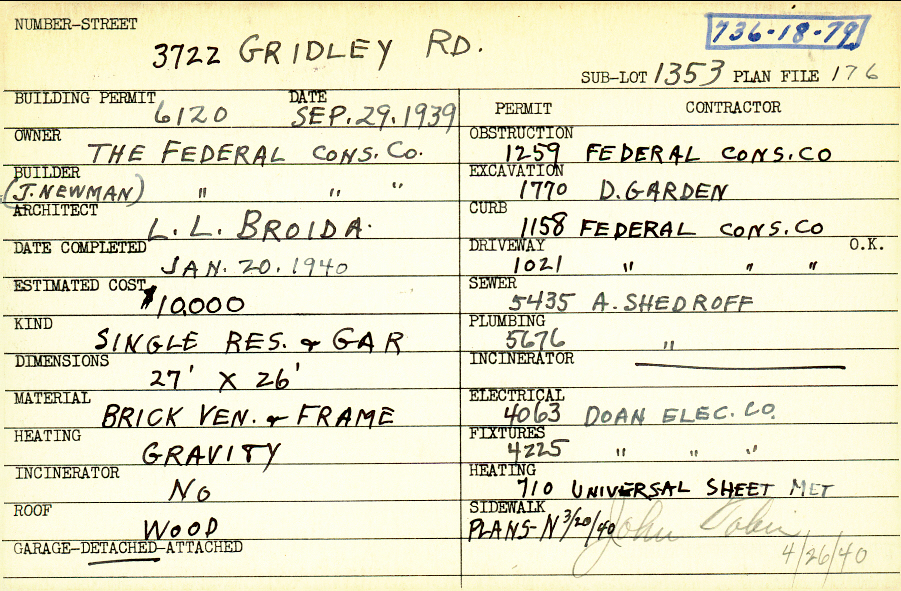 NUMBER-STREET
3722 GRIDLEY RD.
736-18-79
SUB-LOT 1353 PLAN FILE 176
BUILDING PERMIT 6120 DATE SEP. 29. 1939
OWNER THE FEDERAL CONS. CO.
BUILDER (J. NEWMAN) " " "
ARCHITECT L. L. BROIDA.
DATE COMPLETED JAN. 20. 1940
ESTIMATED COST $10,000
KIND SINGLE RES. & GAR
DIMENSIONS 27' X 26'
MATERIAL BRICK VEN. & FRAME
HEATING GRAVITY
INCINERATOR NO
ROOF WOOD
GARAGE-DETACHED-ATTACHED
PERMIT CONTRACTOR
OBSTRUCTION 1259 FEDERAL CONS. CO
EXCAVATION 1770 D. GARDEN
CURB 1158 FEDERAL CONS. CO
DRIVEWAY 1021 " " " O.K.
SEWER 5435 A. SHEDROFF
PLUMBING 5676 "
INCINERATOR
ELECTRICAL 4063 DOAN ELEC. CO.
FIXTURES 4225 " " "
HEATING 710 UNIVERSAL SHEET MET
SIDEWALK
PLANS-N 3/20/40 John
4/26/40